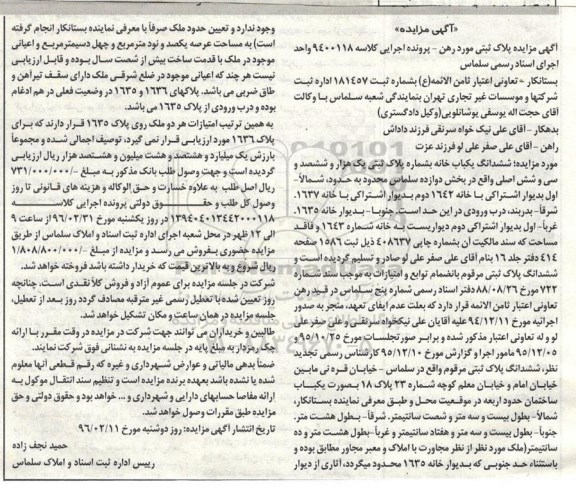 «آگهی مزایده»
آگهی مزایده پلاک ثبتی مورد رهن - پرونده اجرایی کلاسه ۹۴۰۰۱۱۸ واحد
اجرای اسناد رسمی سلماس
بستانکار - تعاونی اعتبار ثامن الائمه(ع) بشماره ثبت ۱۸۱۴۵۷ اداره ثبت
شرکتها و موسسات غیر تجاری تهران بنمایندگی شعبه سلماس با وکالت
آقای حجت اله یوسفی یوشانلویی(وکیل دادگستری)
بدهکار - آقای علی نیک خواه سرنقی فرزند داداش
راهن - آقای علی صفر علی لو فرزند عزت
مورد مزایده: ششدانگ یکباب خانه بشماره پلاک ثبتی یک هزار و ششصد و
سی و شش اصلی واقع در بخش دوازده سلماس محدود به حدود: شمالا-
اول بدیوار اشتراکی با خانه ۱۶۴۲ دوم بدیوار اشتراکی با خانه ۱۶۳۷.
شرقا- بدربند، درب ورودی در این حد است. جنوبا- بدیوار خانه ۱۶۳۵.
غربا- اول بدیوار اشتراکی دوم دیواریست به خانه شماره ۱۶۴۳ و فاقد
مساحت که سند مالکیت آن بشماره چاپی ۴۰۸۶۳۷ ذیل ثبت ۱۵۸۶ صفحه
۴۱۴ دفتر جلد ۱۶ بنام آقای علی صفر علی لو صادر و تسلیم گردیده است و
ششدانگ پلاک ثبتی مرقوم بانضمام توابع و امتیازات به موجب سند شماره
۷۲۲ مورخ ۸۸/۰۸/۲۶ دفتر اسناد رسمی شماره پنج سلماس در قید رهن
تعاونی اعتبار ثامن الائمه قرار دارد که بعلت عدم ایفای تعهد، منجر به صدور
اجرائیه مورخ ۹۴/۱۲/۱۱ علیه آقایان علی نیکخواه سرنقی و علی صفر علی
لو و له تعاونی اعتبار مذکور شده و برابر صورتجلسات مورخ ۹۵/۰۲/۲۵ و
۹۵/۱۲/۰۵ مامور اجرا و گزارش مورخ ۹۵/۱۲/۱۰ کارشناس رسمی تجدید
نظر، ششدانگ پلاک ثبتی مرقوم واقع در سلماس - خیابان قره نی مابین
خیابان امام و خیابان معلم کوچه شماره ۲۳ پلاک ۱۸ بصورت یکباب
ساختمان حدود اربعه در موقعیت محل و طبق معرفی نماینده بستانکار،
شمالا- بطول بیست و سه متر و شصت سانتیمتر. شرقا- بطول هشت متر.
جنوبا- بطول بیست و سه متر و هفتاد سانتیمتر و غربا- بطول هشت متر و ده
سانتیمتر(ملک مورد نظر از نظر مجاورت با املاک و معبر مجاور مطابق بوده و
باستثناء حد جنوبی که بدیوار خانه ۱۶۳۵ محدود میگردد، آثاری از دیوار
وجود ندارد و تعیین حدود ملک صرفا با معرفی نماینده بستانکار انجام گرفته
است) به مساحت عرصه یکصد و نود مترمربع و چهل دسیمترمربع و اعیانی
موجود در ملک با قدمت ساخت بیش از شصت سال بوده و قابل ارزیابی
نیست هر چند که اعیانی موجود در ضلع شرقی ملک دارای سقف تیرآهن و
طاق ضربی می باشد. پلاکهای ۱۶۳۶ و ۱۶۳۵ در وضعیت فعلی در هم ادغام
بوده و درب ورودی از پلاک ۱۶۳۵ می باشد.
به همین ترتیب امتیازات هر دو ملک روی پلاک ۱۶۳۵ قرار دارند که برای
پلاک ۱۶۳۶ مورد ارزیابی قرار نمی گیرد، توصیف اجمالی شده و مجموعا
بارزش یک میلیارد و هشتصد و هشت میلیون و هشتصد هزار ریال ارزیابی
گردیده است و جهت وصول طلب بانک مذکور به مبلغ -/۷۳۱/۰۰۰/۰۰۰
ریال اصل طلب به علاوه خسارت و حق الوکاله و هزینه های قانونی تا روز
وصول کل طلب و حقوق دولتی پرونده اجرایی کلاسه
۱۳۹۴۰۴۰۱۳۴۴۲۰۰۰۱۱۸ در روز یکشنبه مورخ ۹۶/۰۲/۳۱ از ساعت ۹
الی ۱۲ ظهر در محل شعبه اجرای اداره ثبت اسناد و املاک سلماس از طریق
مزایده حضوری بفروش می رسد و مزایده از مبلغ -/۱/۸۰۸/۸۰۰/۰۰۰
ریال شروع و به بالاترین قیمت که خریدار داشته باشد فروخته خواهد شد.
شرکت در جلسه مزایده برای عموم آزاد و فروش کلا نقدی است. چنانچه
روز تعیین شده با تعطیل رسمی غیر مترقبه مصادف گردد روز بعد از تعطیل،
جلسه مزایده در همان ساعت و مکان تشکیل خواهد شد.
طالبین و خریداران می توانند جهت شرکت در مزایده در وقت مقرر با ارائه
چک رمزدار به مبلغ پایه در جلسه مزایده به نشانی فوق شرکت نمایند.
ضمنا بدهی مالیاتی و عوارض شهرداری و غیره که رقم قطعی آنها معلوم
شده یا نشده باشد بعهده برنده مزایده است و تنظیم سند انتقال موکول به
ارائه مفاصا حسابهای دارایی و شهرداری و ... خواهد بود و حقوق دولتی و حق
مزایده طبق مقررات وصول خواهد شد.
تاریخ انتشار آگهی مزایده: روز دوشنبه مورخ ۹۶/۰۲/۱۱
حمید نجف زاده
رییس اداره ثبت اسناد و املاک سلماس